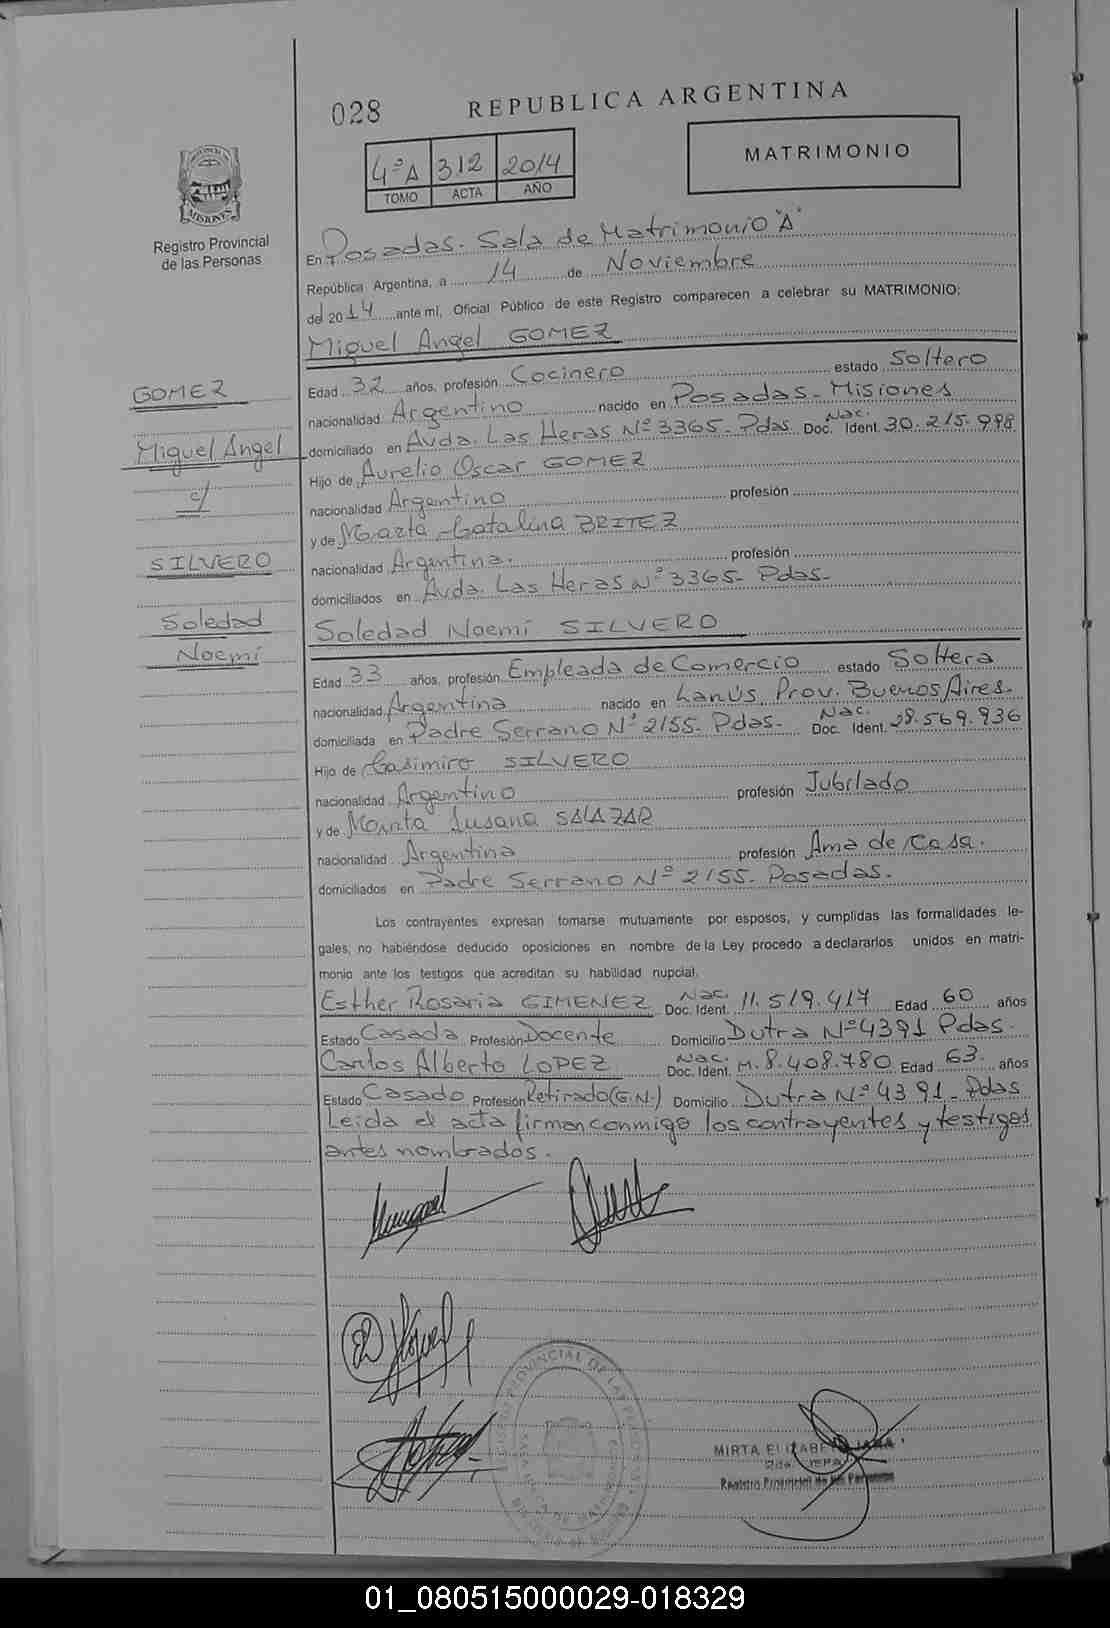 028 REPUBLICA ARGENTINA
4ºA 312 2014
TOMO ACTA AÑO
MATRIMONIO
PROVINCIA DE
MISIONES
Registro Provincial
de las Personas
En Posadas. Sala de Matrimonio "A"
República Argentina, a 14 de Noviembre
del 2014 ante mí, Oficial Público de este Registro comparecen a celebrar su MATRIMONIO:
Miguel Angel GOMEZ
GOMEZ
Miguel Angel
c/
SILVERO
Soledad
Noemí
Edad 32 años, profesión Cocinero estado Soltero
nacionalidad Argentino nacido en Posadas - Misiones
domiciliado en Avda. Las Heras Nº 3365- Pdas. Nac. Doc. Ident. 30.215.998
Hijo de Aurelio Oscar GOMEZ
nacionalidad Argentino profesión
y de Marta Catalina BRITEZ
nacionalidad Argentina. profesión
domiciliados en Avda. Las Heras Nº 3365- Pdas-
Soledad Noemí SILVERO
Edad 33 años, profesión Empleada de Comercio estado Soltera
nacionalidad Argentina nacido en Lanús Prov. Buenos Aires.
domiciliada en Padre Serrano Nº 2155- Pdas. Nac. Doc. Ident. 28.569.936
Hijo de Casimiro SILVERO
nacionalidad Argentino profesión Jubilado
y de Marita Susana SALAZAR
nacionalidad Argentina profesión Ama de Casa.
domiciliados en Padre Serrano Nº 2155- Posadas.
Los contrayentes expresan tomarse mutuamente por esposos, y cumplidas las formalidades le-
gales, no habiéndose deducido oposiciones en nombre de la Ley procedo a declararlos unidos en matri-
monio ante los testigos que acreditan su habilidad nupcial.
Esther Rosaria GIMENEZ Nac. Doc. Ident. 11.519.417 Edad 60 años
Estado Casada Profesión Docente Domicilio Dutra Nº 4391 Pdas.
Carlos Alberto LOPEZ Nac. Doc. Ident. M.8.408.780 Edad 63. años
Estado Casado Profesión Retirado (G.N.) Domicilio Dutra Nº 4391- Pdas
Leída el acta firman conmigo los contrayentes y testigos
antes nombrados.
MIRTA ELIZABETH
Registro Provincial de las Personas
01_080515000029-018329